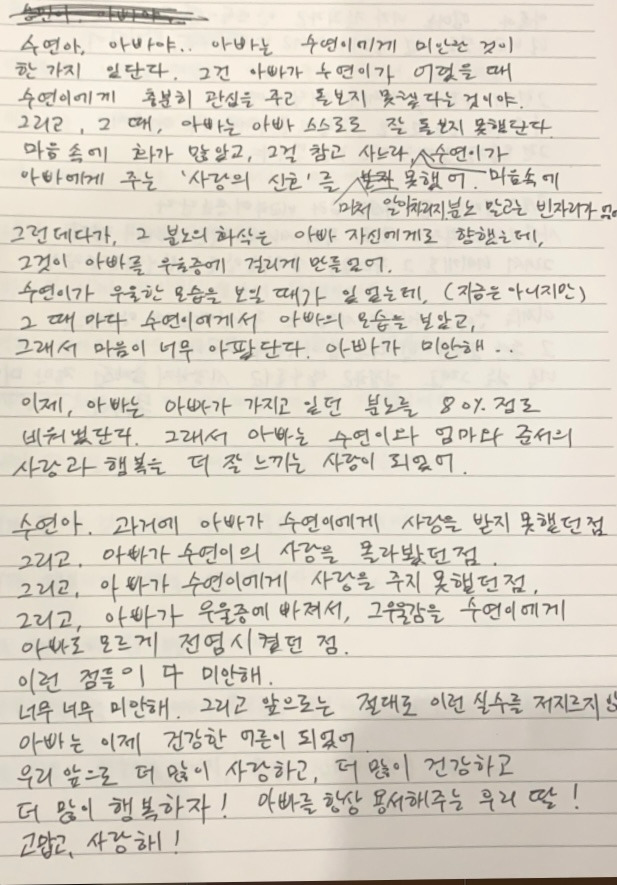 수연아, 아빠야.. 아빠는 수연이에게 미안한 것이
한 가지 있단다. 그건 아빠가 수연이가 어렸을 때
수연이에게 충분히 관심을 주고 돌보지 못했다는 것이야.
그리고, 그 때, 아빠는 아빠 스스로도 잘 돌보지 못했단다.
마음 속에 화가 많았고, 그걸 참고 사느라, 수연이가
아빠에게 주는 '사랑의 신호'를 미처 알아차리지 못했어. 마음속에
분노 말고는 빈자리가 없
그런데다가, 그 분노의 화살은 아빠 자신에게로 향했는데,
그것이 아빠를 우울증에 걸리게 만들었어.
수연이가 우울한 모습을 보일 때가 있었는데, (지금은 아니지만)
그 때 마다 수연이에게서 아빠의 모습을 보았고,
그래서 마음이 너무 아팠단다. 아빠가 미안해..
이제, 아빠는 아빠가 가지고 있던 분노를 80% 정도
비워냈단다. 그래서 아빠는 수연이와 엄마와 준서의
사랑과 행복을 더 잘 느끼는 사람이 되었어.
수연아. 과거에 아빠가 수연이에게 사랑을 받지 못했던 점
그리고, 아빠가 수연이의 사랑을 몰라봤던 점.
그리고, 아빠가 수연이에게 사랑을 주지 못했던 점,
그리고, 아빠가 우울증에 빠져서, 그 우울감을 수연이에게
아빠도 모르게 전염시켰던 점.
이런 점들이 다 미안해.
너무 너무 미안해. 그리고 앞으로는 절대로 이런 실수를 저지르지 않
아빠는 이제 건강한 어른이 되었어.
우리 앞으로 더 많이 사랑하고, 더 많이 건강하고
더 많이 행복하자! 아빠를 항상 용서해주는 우리 딸!
고맙고, 사랑해!